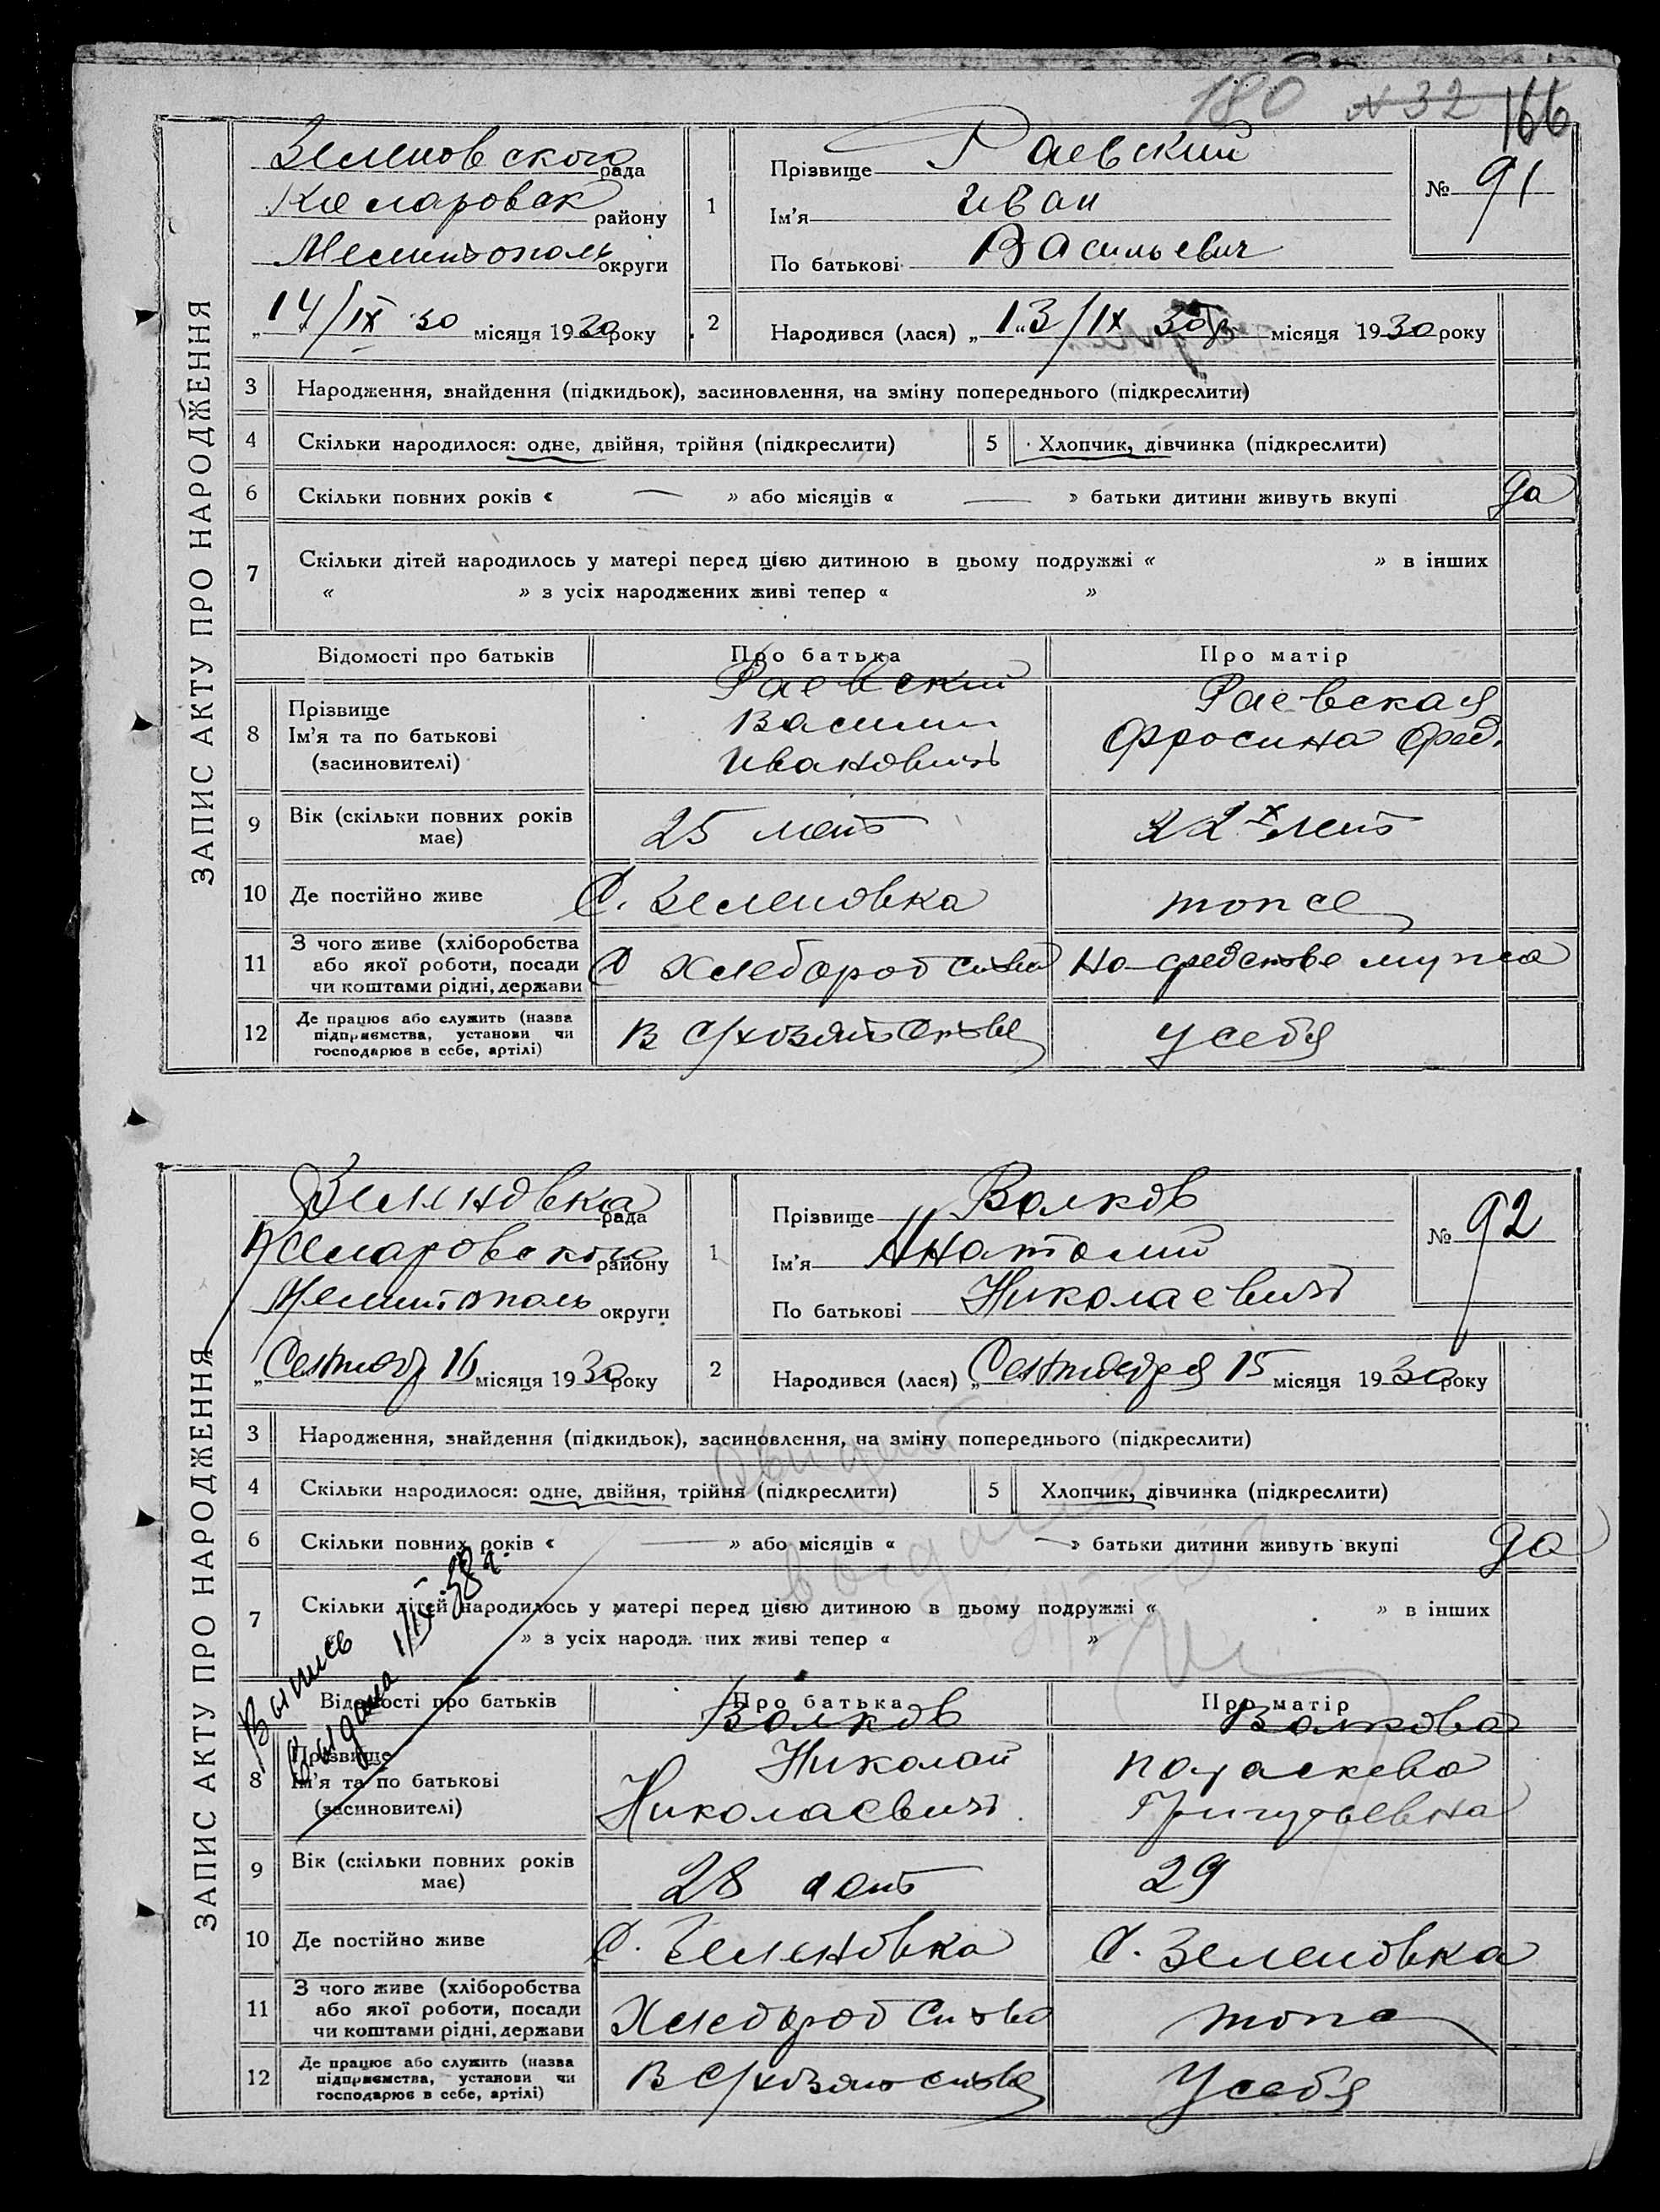 180 N 32 166
ЗАПИС АКТУ ПРО НАРОДЖЕННЯ
Зеленовского рада
району
Мелитополь округи
„14/IX 30 місяця 1930 року
1
Прізвище Раевский
Ім'я Иван
По батькові Васильевич
№ 91
2
Народився (лася) „13/IX 30 місяця 1930 року
3 Народження, знайдення (підкидьок), засиновлення, на зміну попереднього (підкреслити)
4 Скільки народилося: одне, двійня, трійня (підкреслити) 5 Хлопчик, дівчинка (підкреслити)
6 Скільки повних років « — » або місяців « — » батьки дитини живуть вкупі да
7 Скільки дітей народилось у матері перед цією дитиною в цьому подружжі « » в інших
« » з усіх народжених живі тепер « »
Відомості про батьків Про батька Про матір
8 Прізвище
Ім'я та по батькові
(засиновителі)
Раевский
Василий
Иванович
Раевская
Фросина Фед.
9 Вік (скільки повних років має) 25 лет 22х лет
10 Де постійно живе С. Зеленовка тоже
11 З чого живе (хліборобства
або якої роботи, посади
чи коштами рідні, держави
Хлебородство На средстве мужа
12 Де працює або служить (назва
підприємства, установи чи
господарює в себе, артілі)
В С/хозяйстве У себя
ЗАПИС АКТУ ПРО НАРОДЖЕННЯ
Зеленовка рада
району
Мелитополь округи
„Сентябр 16 місяця 1930 року
1
Прізвище Волков
Ім'я Анатолий
По батькові Николаевич
№ 92
2
Народився (лася) „Сентября 15 місяця 1930 року
3 Народження, знайдення (підкидьок), засиновлення, на зміну попереднього (підкреслити)
4 Скільки народилося: одне, двійня, трійня (підкреслити) 5 Хлопчик, дівчинка (підкреслити)
6 Скільки повних років « — » або місяців « — » батьки дитини живуть вкупі да
7 Скільки дітей народилось у матері перед цією дитиною в цьому подружжі « » в інших
» з усіх народж них живі тепер « »
Выпись
Выдана 1/IX 38 г.
Відомості про батьків Про батька Про матір
8 Прізвище
Ім'я та по батькові
(засиновителі)
Волков
Николай
Николаевич
Волкова
Параскева
Григорьевна
9 Вік (скільки повних років має) 28 лет 29
10 Де постійно живе С. Зеленовка С. Зеленовка
11 З чого живе (хліборобства
або якої роботи, посади
чи коштами рідні, держави
Хлебородство тоже
12 Де працює або служить (назва
підприємства, установи чи
господарює в себе, артілі)
В С/хозяйстве У себя